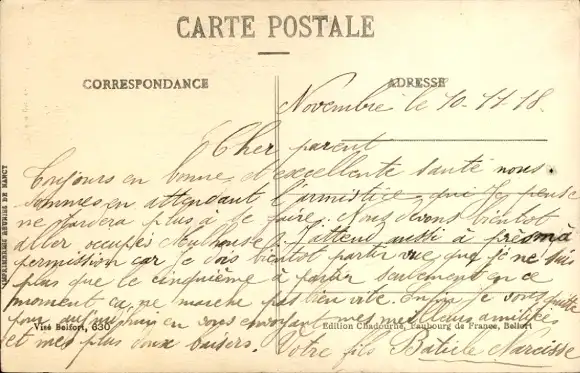 CARTE POSTALE
CORRESPONDANCE
ADRESSE
Novembre le 10-11-18.
Cher parent
Toujours en bonne et excellente santé nous
sommes en attendant l'armistice qui je pense
ne tardera plus à se faire. Nous devons bientot
aller occuper Mulhouse. J'attend aussi à près ma
permission car je dois bientot partir vue que je ne suis
plus que le cinquième à partir seulement en ce
moment ca ne marche pas bien vite. Enfin je vous quitte
pour aujourd'hui en vous envoyant mes meilleurs amitiées
et mes plus doux baisers. Votre fils Narcisse
Visé Belfort, 630
Edition Chadourne, Faubourg de France, Belfort
IMPRIMERIES REUNIES DE NANCY